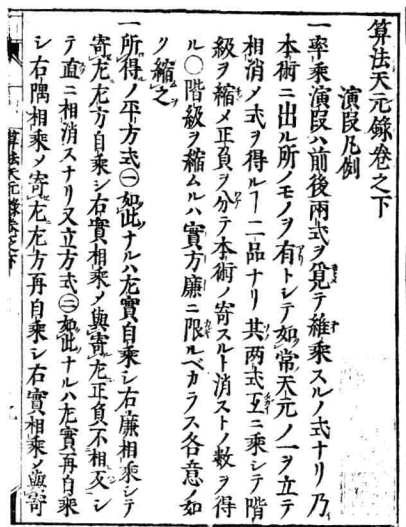 算法天元錄卷之下
演段凡例
一率乘演段ハ前後兩式ヲ覓テ維乘スルノ式ナリ乃
本術ニ出ル所ノモノヲ有トシテ如常天元ノ一ヲ立テ
相消ノ式ヲ得ルヿ二品ナリ其两式互ニ乘シテ階
級ヲ縮メ正負ヲ分テ本術ノ寄スルト消ストノ数ヲ得
ル〇階級ヲ縮ムルハ實方廉ニ限ルベカラス各意ノ如
ク縮之
一所得ノ平方式㊀如此ナルハ左實自乘シ右廉相乘シテ
寄左左方自乘シ右實相乘メ與寄左正負不相反シ
テ直ニ相消スナリ又立方式㊁如此ナルハ左實再自乘
シ右隅相乘メ寄左左方再自乘シ右實相乘メ與寄
算法天元錄卷之下